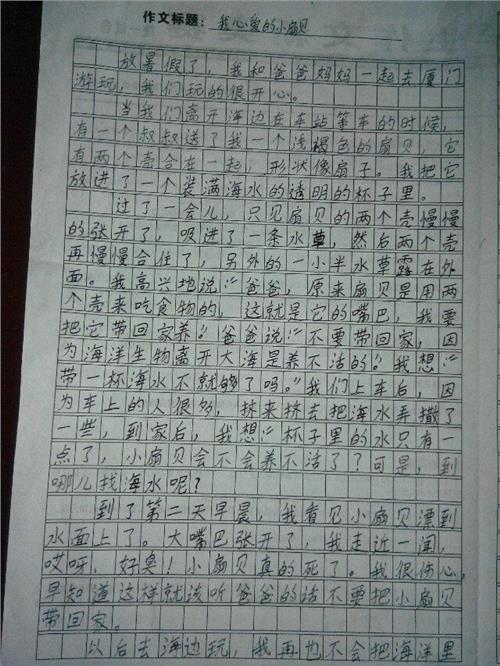 作文标题：我心爱的小扇贝
放暑假了，我和爸爸妈妈一起去厦门
游玩，我们玩的很开心。
当我们离开海边在车站等车的时候，
有一个叔叔送了我一个浅褐色的扇贝，它
有两个壳合在一起，形状像扇子。我把它
放进了一个装满海水的透明的杯子里。
过了一会儿，只见扇贝的两个壳慢慢
的张开了，吸进了一条水草，然后两个壳
再慢慢合住了，另外的一小半水草露在外
面。我高兴地说：“爸爸，原来扇贝是用两
个壳来吃食物的，这就是它的嘴巴，我要
把它带回家养。”爸爸说：“不要带回家，因
为海洋生物离开大海是养不活的。”我想：“
带一杯海水不就够了吗。”我们上车后，因
为车上的人很多，挤来挤去把海水弄撒了
一些，到家后，我想：“杯子里的水只有一
点了，小扇贝会不会养不活了？可是，到
哪儿找海水呢？
到了第二天早晨，我看见小扇贝漂到
水面上了。大嘴巴张开了，我走近一闻，
哎呀，好臭！小扇贝真的死了。我很伤心，
早知道这样就该听爸爸的话不要把小扇贝
带回家。
以后去海边玩，我再也不会把海洋里